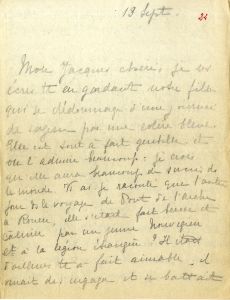 13 Sept.
24
Mon Jacques chéri, je vs
écris tt en gardant notre fille
qui se dédommage d'une journée
de sagesse par une colère bleue.
Elle est tout à fait gentille et
on l'admire beaucoup : je crois
qu'elle aura beaucoup de succès ds
le monde. T'ai-je raconté que l'autre
jour ds le voyage de Pont de l'arche
à Rouen, elle s'était fait bercer et
calmer par un jeune
et à la légion étrangère ? Il était
d'ailleurs tt à fait aimable, il
venait de s'engager et se battait